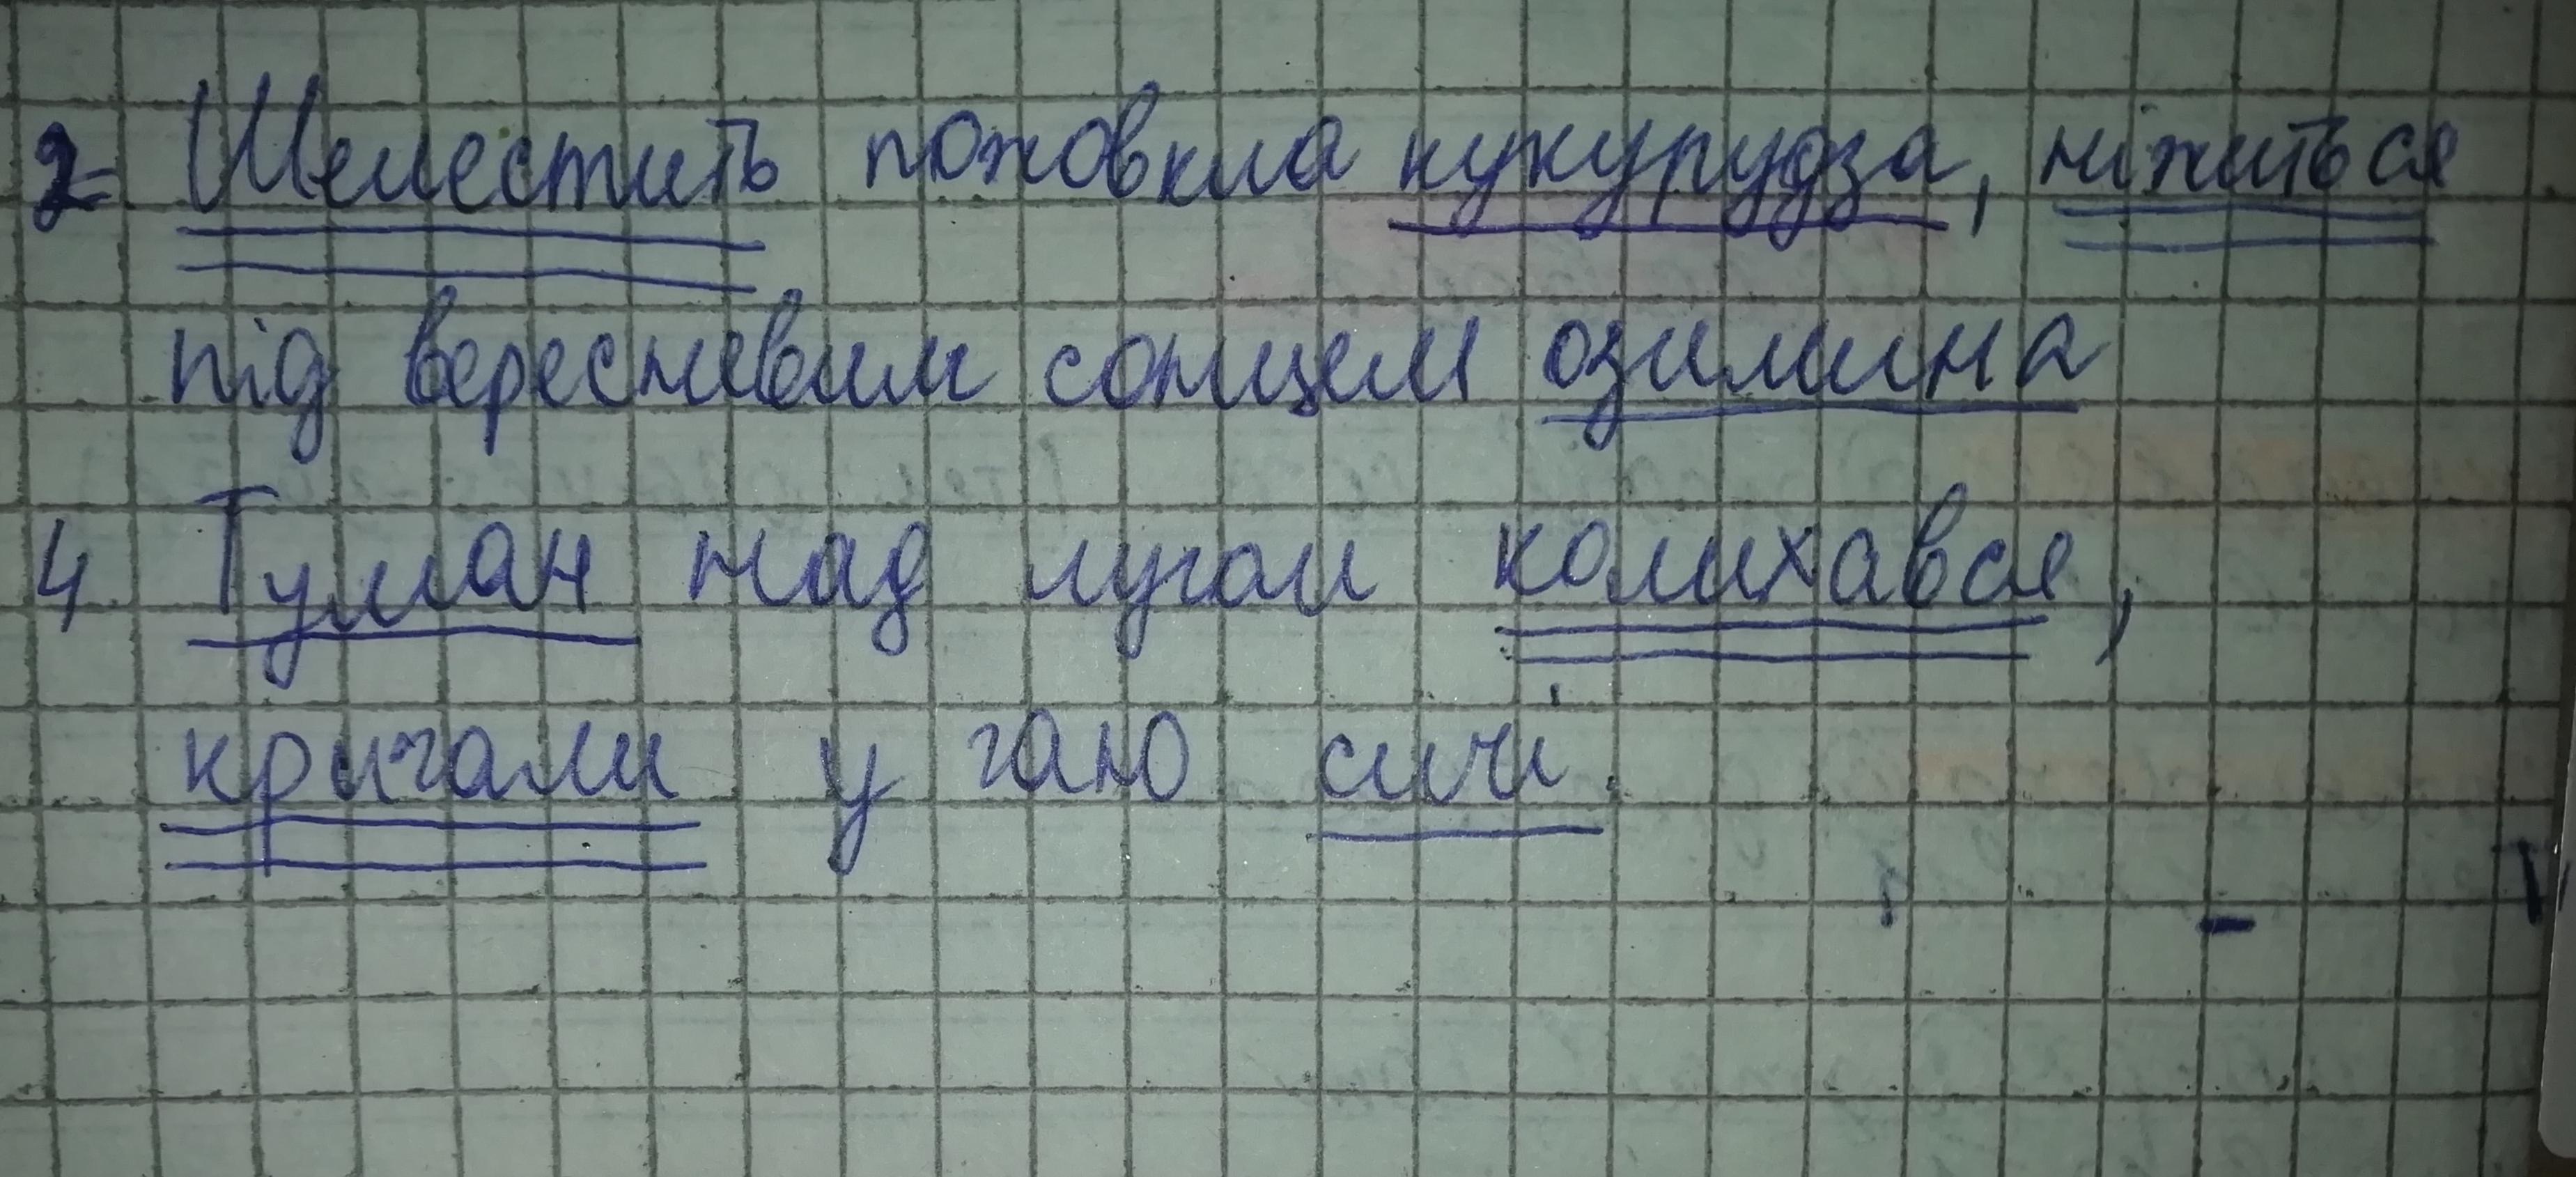 2 Шелестить пожовкла кукурудза, ніжиться
під вересневим сонцем озимина
4. Туман над лугом колихався,
кричали у гаю сичі.